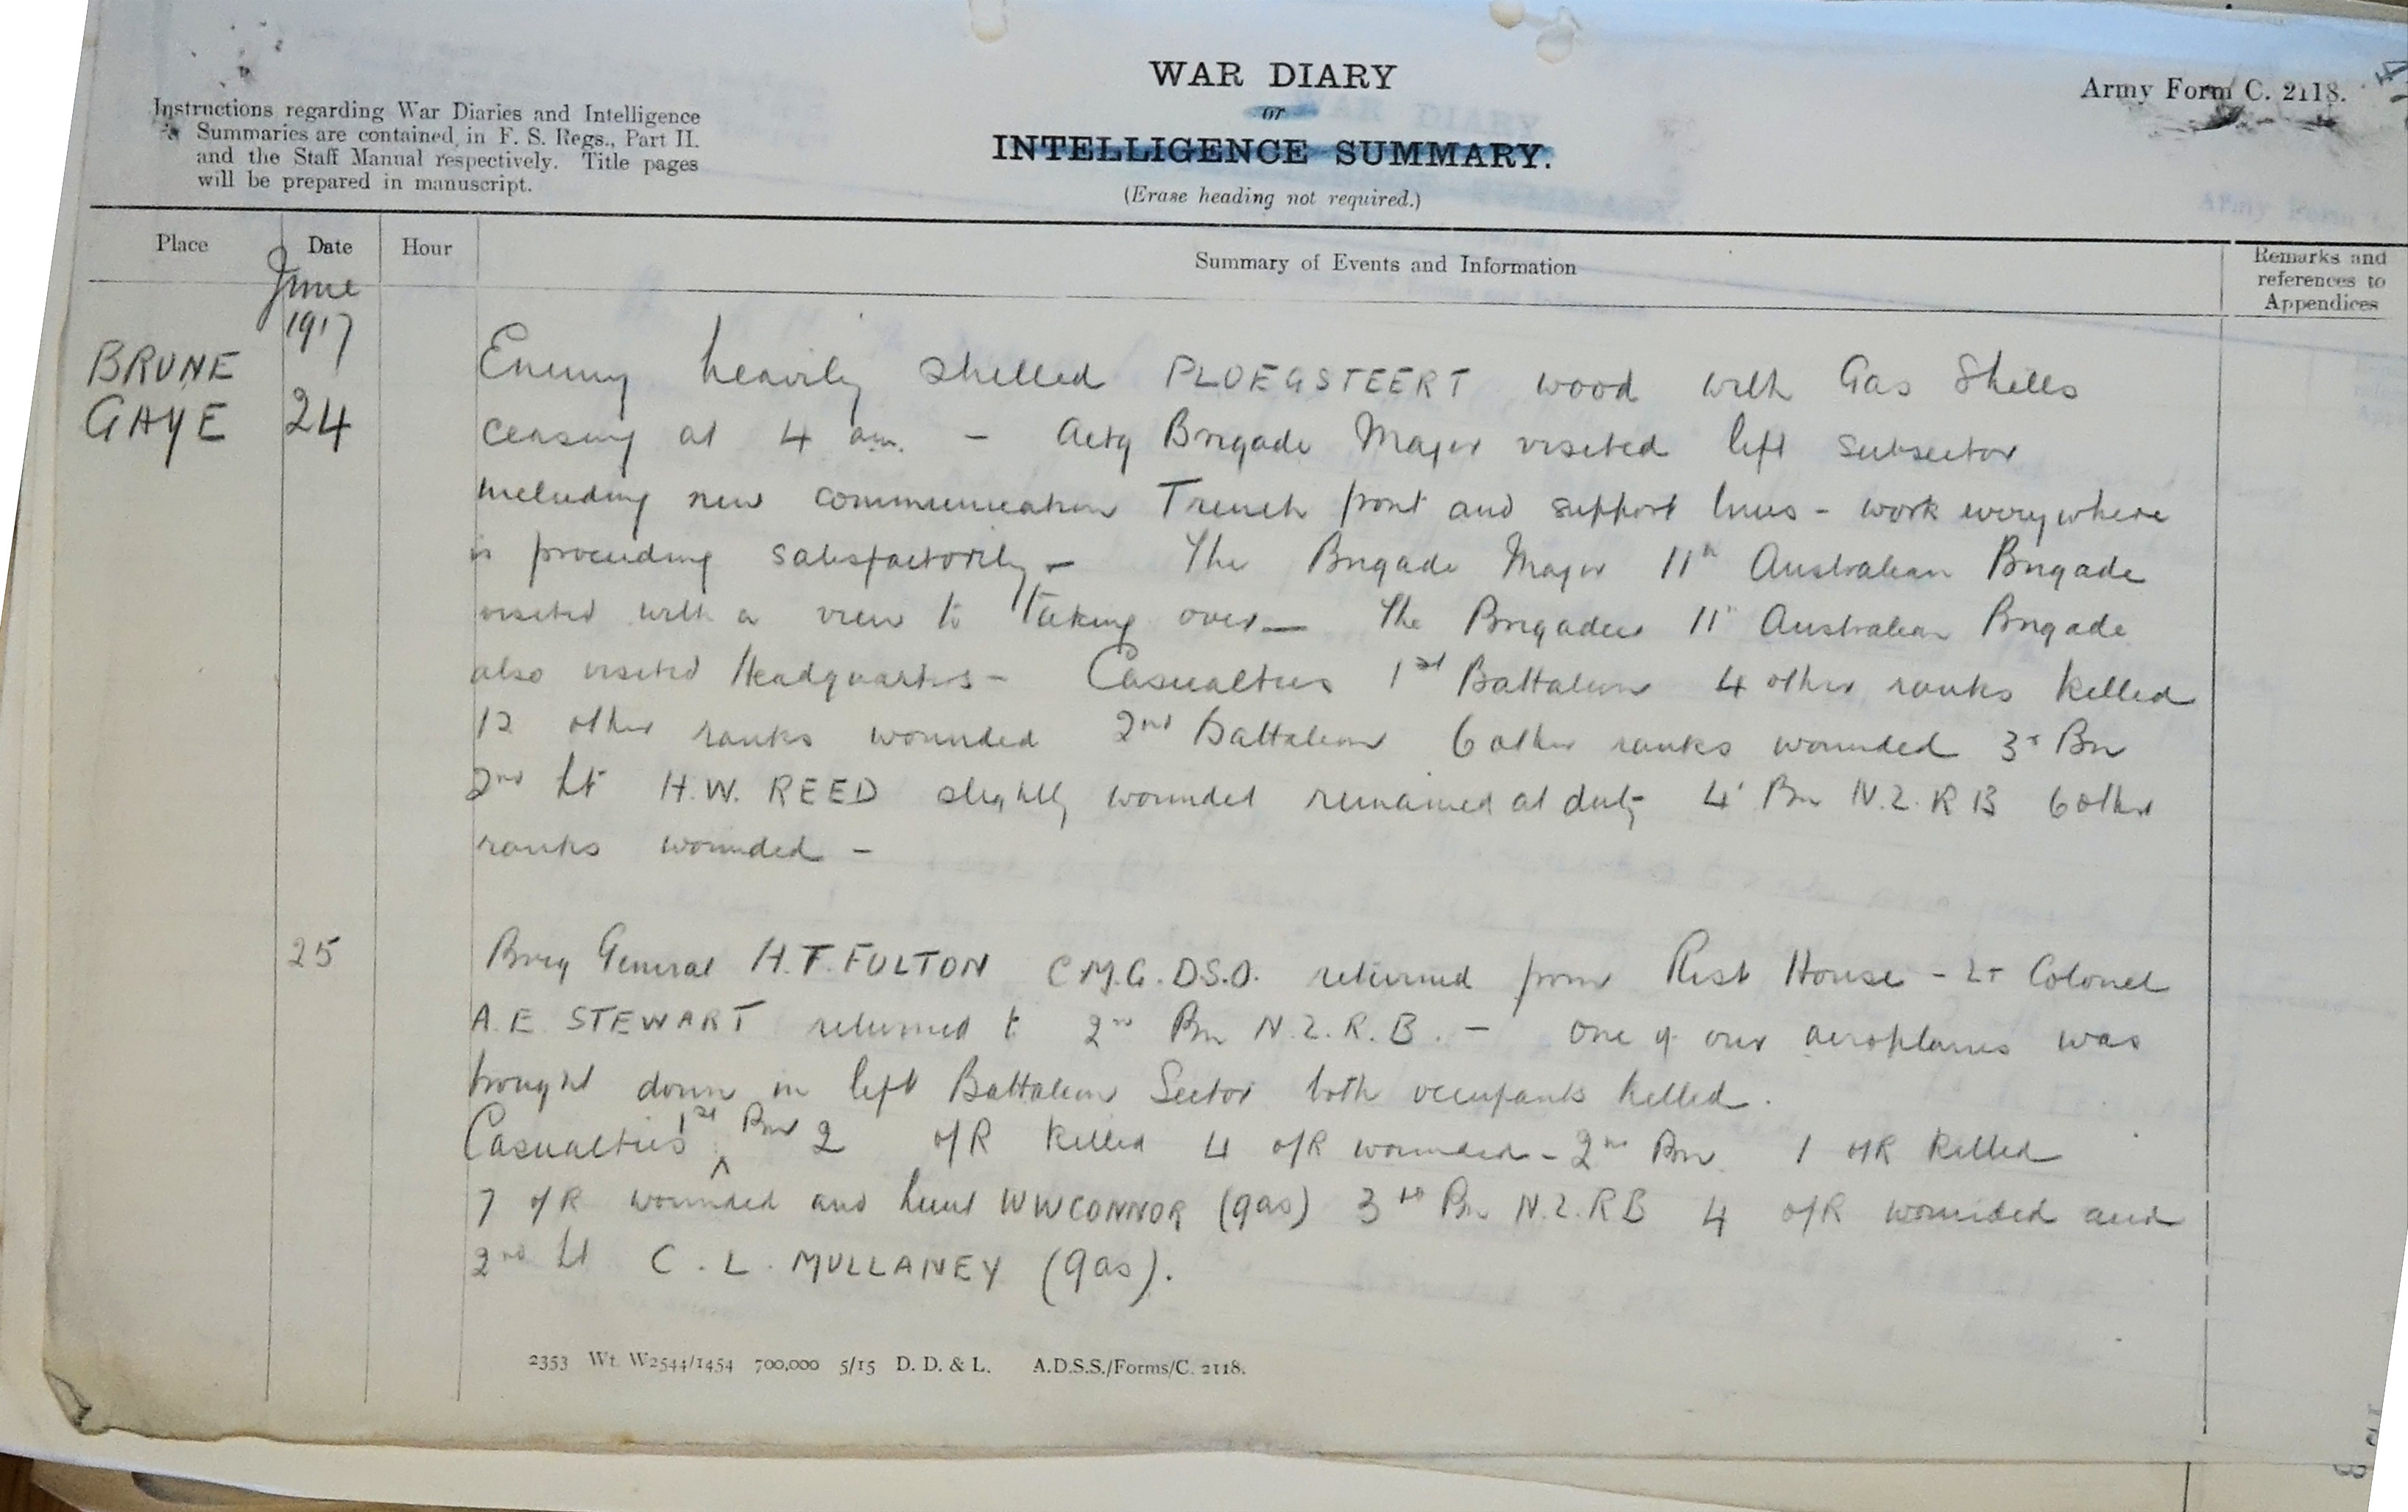 WAR DIARY
or
INTELLIGENCE SUMMARY.
(Erase heading not required.)
Army Form C. 2118.
Instructions regarding War Diaries and Intelligence
Summaries are contained in F. S. Regs., Part II.
and the Staff Manual respectively. Title pages
will be prepared in manuscript.
Place
Date
Hour
Summary of Events and Information
Remarks and
references to
Appendices
June
1917
BRUNE
GAYE
24
Enemy heavily shelled PLOEGSTEERT wood with Gas Shells
ceasing at 4 am. - Actg Brigade Major visited left subsector
including new communication Trench front and support lines - work everywhere
is proceeding satisfactorily - The Brigade Major 11th Australian Brigade
visited with a view to Taking over - The Brigadier 11th Australian Brigade
also visited Headquarters - Casualties 1st Battalion 4 other ranks killed
12 other ranks wounded 2nd Battalion 6 other ranks wounded 3r Bn
2nd Lt H.W. REED slightly wounded remained at duty 4' Bn N.Z.R B 6 other
ranks wounded -
25
Brig General H.T. FULTON C.M.G. D.S.O. returned from Rest House - Lt Colonel
A.E STEWART returned to 2nd Bn N.Z.R.B. - One of our aeroplanes was
brought down in left Battalion Sector both occupants killed.
Casualties 1st Bn 2 o/R killed 4 o/R wounded - 2nd Bn 1 o/R killed
7 o/R wounded and Lieut WWCONNOR (gas) 3rd Bn N.Z.RB 4 o/R wounded and
2nd Lt C. L. MULLANEY (gas).
2353 Wt. W2544/1454 700,000 5/15 D. D. & L. A.D.S.S./Forms/C. 2118.